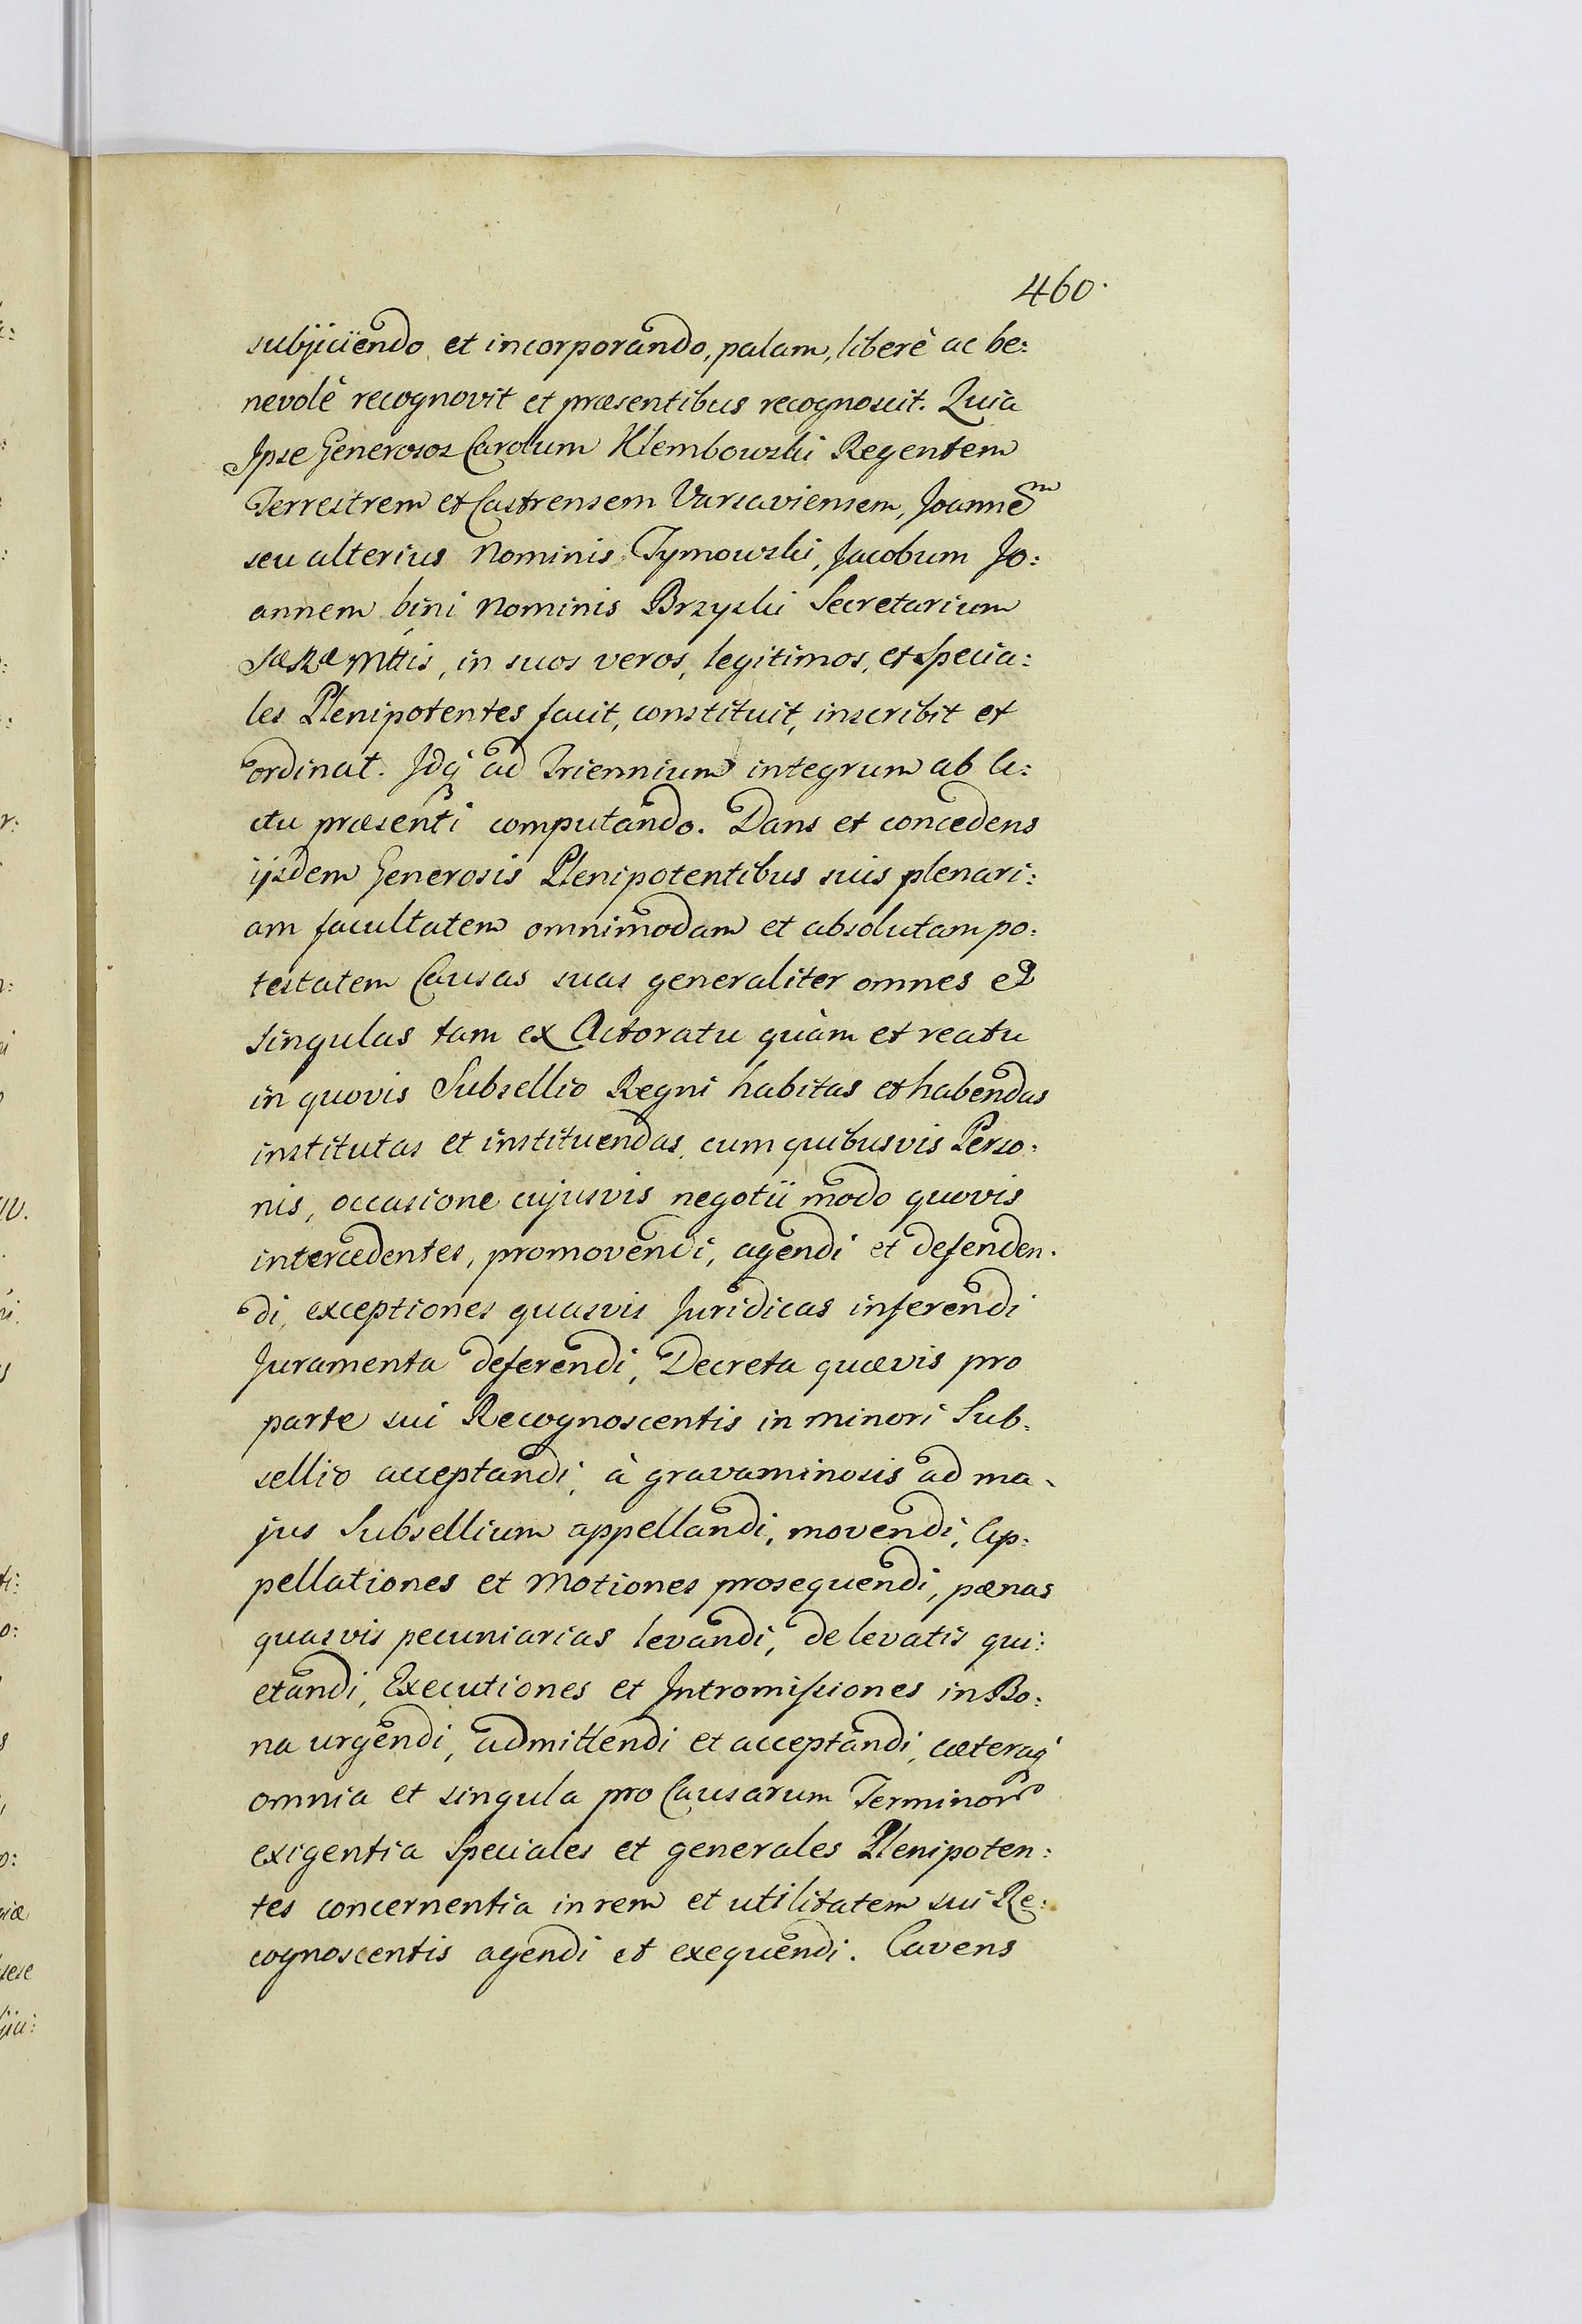 460.
subjiciendo et incorporando, palam, liberè ac be:
nevolè recognovit et præsentibus recognoscit. Quia
Ipse Generosos Carolum Klembowski Regentem
Terrestrem et Castrensem Varsaviensem, Joannem
seu alterius Nominis Tymowski, Jacobum Jo:
annem bini Nominis Brzyski Secretarium
SæRæMttis, in suos veros, legitimos, et Specia:
les Plenipotentes facit, constituit, inscribit et
ordinat. Idq ad Triennium integrum ab A:
ctu præsenti computando. Dans et concedens
ijsdem Generosis Plenipotentibus suis plenari:
am facultatem omnimodam et absolutam po:
testatem Causas suas generaliter omnes et
singulas tam ex Actoratu quàm et reatu
in quovis Subsellio Regni habitas et habendas
institutas et instituendas, cum quibusvis Perso:
nis, occasione cujusvis negotii modo quovis
intercedentes, promovendi, agendi et defenden:
di, exceptiones quasvis Juridicas inferendi
Juramenta deferendi, Decreta quævis pro
parte sui Recognoscentis in minori Sub:
sellio acceptandi, à gravaminosis ad ma:
jus Subsellium appellandi, movendi, Ap:
pellationes et Motiones prosequendi, pænas
quasvis pecuniarias levandi, de levatis qui:
etandi, Executiones et Intromissiones in Bo:
na urgendi, admittendi et acceptandi, cæteraq
omnia et singula pro Causarum Terminor
exigentia Speciales et generales Plenipoten:
tes concernentia in rem et utilitatem sui Re:
cognoscentis agendi et exequendi. Cavens